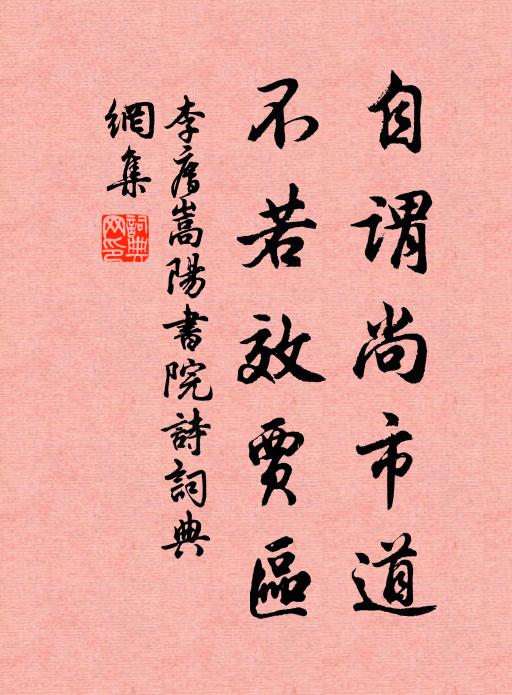 自謂尚市道
不若效賈區
李廌嵩陽書院詩詞典
網集
詞典網印